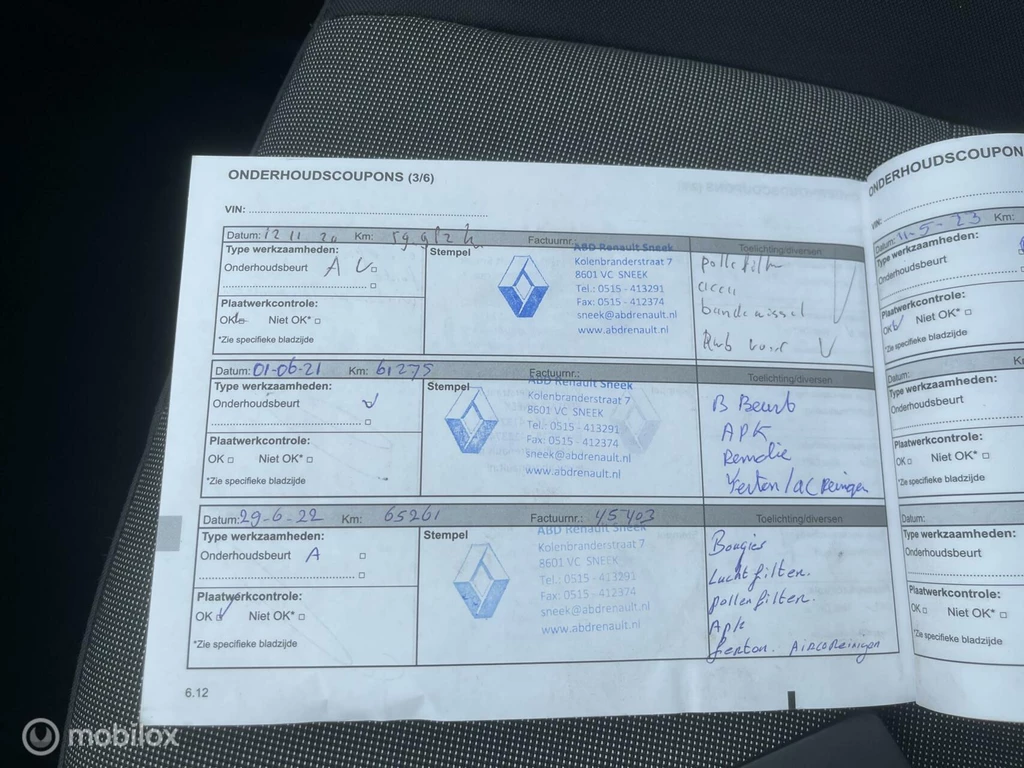 ONDERHOUDSCOUPONS (3/6)
VIN:
Datum: 12 11 20 Km: Factuurnr.:
Type werkzaamheden:
Onderhoudsbeurt A
Plaatwerkcontrole:
OK Niet OK*
*Zie specifieke bladzijde
Stempel
ABD Renault Sneek
Kolenbranderstraat 7
8601 VC SNEEK
Tel.: 0515 - 413291
Fax: 0515 - 412374
sneek@abdrenault.nl
www.abdrenault.nl
Toelichting/diversen
pollenfilter
accu
bandenwissel
voor
Datum: 01-06-21 Km: 61275 Factuurnr.:
Type werkzaamheden:
Onderhoudsbeurt
Plaatwerkcontrole:
OK Niet OK*
*Zie specifieke bladzijde
Stempel
ABD Renault Sneek
Kolenbranderstraat 7
8601 VC SNEEK
Tel.: 0515 - 413291
Fax: 0515 - 412374
sneek@abdrenault.nl
www.abdrenault.nl
Toelichting/diversen
B Beurt
APK
/ac Reinigen
Datum: 29-6-22 Km: 65261 Factuurnr.: 45403
Type werkzaamheden:
Onderhoudsbeurt A
Plaatwerkcontrole:
OK Niet OK*
*Zie specifieke bladzijde
Stempel
ABD Renault Sneek
Kolenbranderstraat 7
8601 VC SNEEK
Tel.: 0515 - 413291
Fax: 0515 - 412374
sneek@abdrenault.nl
www.abdrenault.nl
Toelichting/diversen
Bougies
Luchtfilter.
pollenfilter.
Apk
Airco Reinigen
6.12
ONDERHOUDSCOUPON
VIN:
Datum: 11-5-23 Km:
Type werkzaamheden:
Onderhoudsbeurt
Plaatwerkcontrole:
OK Niet OK*
*Zie specifieke bladzijde
Datum:
Type werkzaamheden:
Onderhoudsbeurt
Plaatwerkcontrole:
OK Niet OK*
*Zie specifieke bladzijde
Datum:
Type werkzaamheden:
Onderhoudsbeurt
Plaatwerkcontrole:
OK Niet OK*
*Zie specifieke bladzijde
mobilox